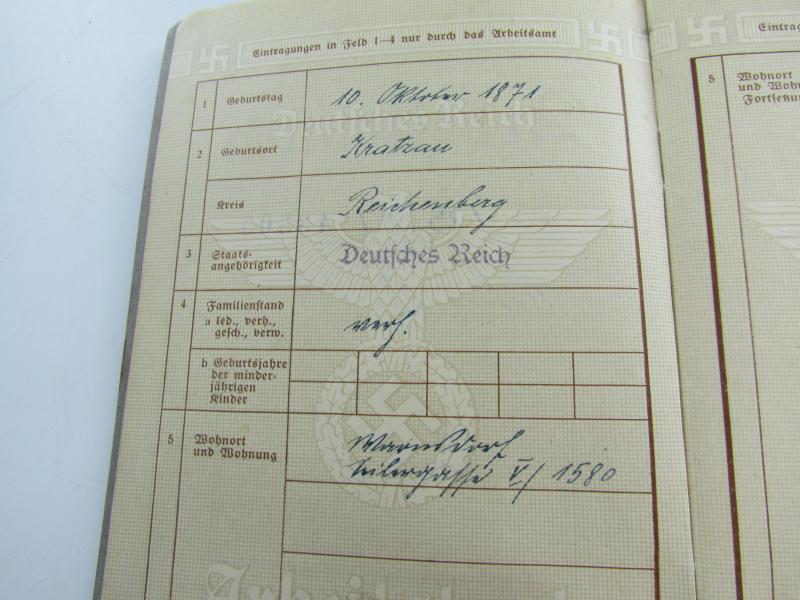 Eintragungen in Feld 1—4 nur durch das Arbeitsamt
1 Geburtstag 10. Oktober 1871
Deutsches Reich
2 Geburtsort Kratzau
Kreis Reichenberg
3 Staats-
angehörigkeit Deutsches Reich
4 Familienstand
a led., verh.,
gesch., verw. verh.
b Geburtsjahre
der minder-
jährigen
Kinder
5 Wohnort
und Wohnung
Warnsdorf
Seilergasse V/1580
Eintrag
5 Wohnort
und Woh
Fortsetzu